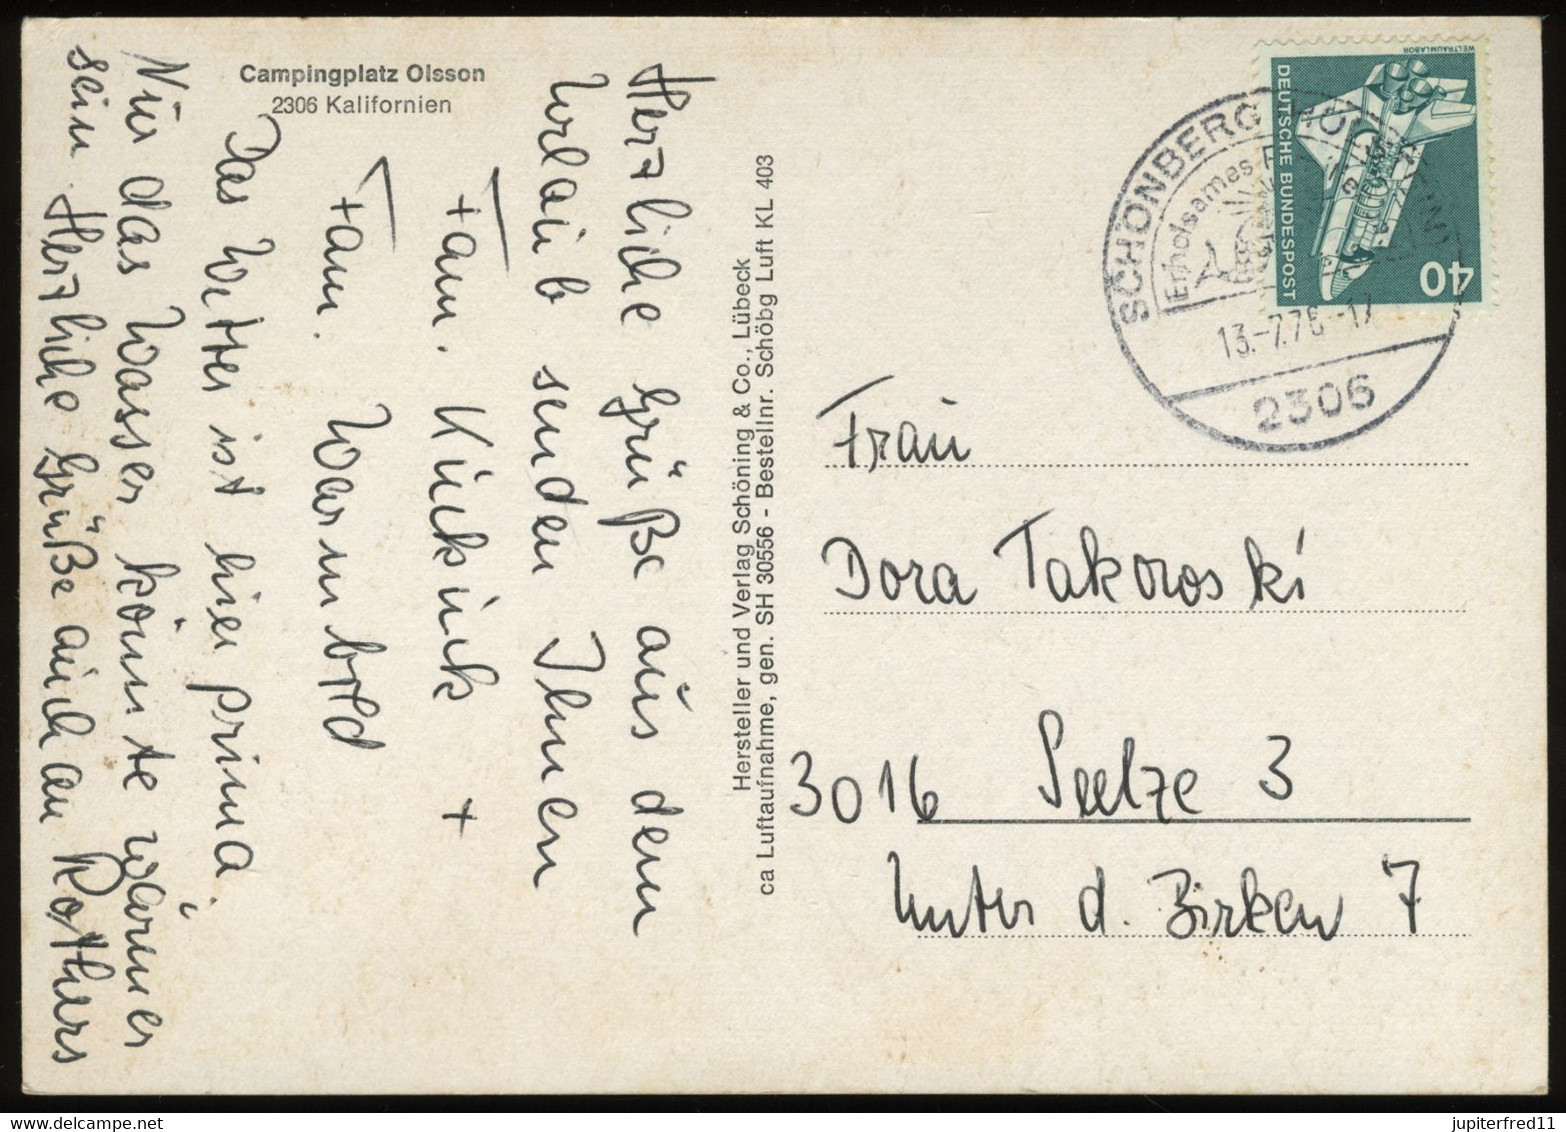 Campingplatz Olsson
2306 Kalifornien
Herzliche Grüße aus dem
Urlaub senden Ihnen
Fam. Kuckuck +
Fam. Warmbold
Das Wetter ist hier prima.
Nur das Wasser könnte wärmer
sein. Herzliche Grüße auch an Rothers
Hersteller und Verlag Schöning & Co., Lübeck
ca Luftaufnahme, gen. SH 30556 - Bestellnr. Schöbg Luft KL 403
WELTRAUMLABOR
DEUTSCHE BUNDESPOST
40
SCHÖNBERG
Erholsames
13.-7.76-17
2306
Frau
Dora Takoroski
3016 Seelze 3
Unter d. Birken 7
jupiterfred11